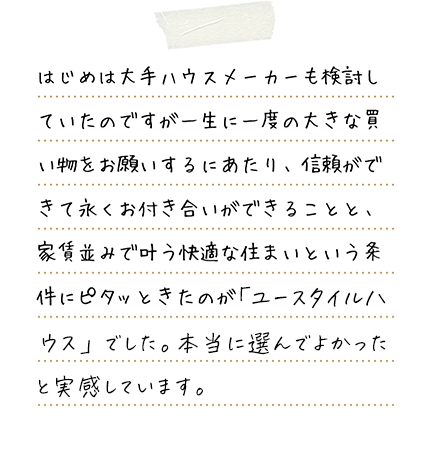 はじめは大手ハウスメーカーも検討し
ていたのですが一生に一度の大きな買
い物をお願いするにあたり、信頼がで
きて永くお付き合いができることと、
家賃並みで叶う快適な住まいという条
件にピタッときたのが「ユースタイルハ
ウス」でした。本当に選んでよかった
と実感しています。